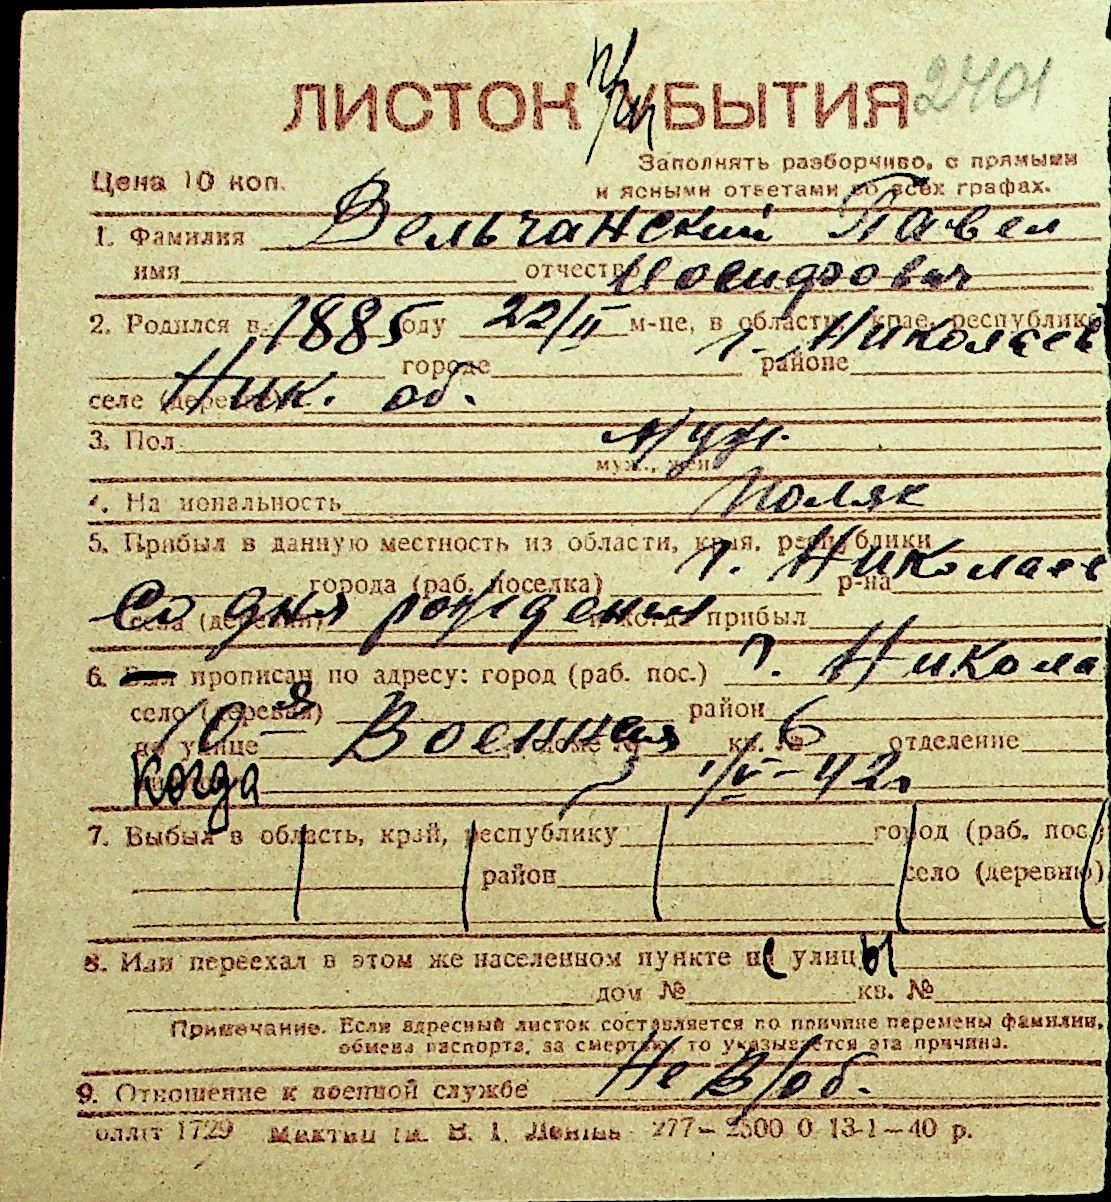 ЛИСТОК УБЫТИЯ 2401
Цена 10 коп.
Заполнять разборчиво, с прямыми
и ясными ответами во всех графах.
1. Фамилия Вельчанский Павел
имя отчество Иосифович
2. Родился в 1885 году 22/II м-це, в области, крае, республике
г. Николаев
городе районе
селе (деревне) Ник. об.
3. Пол муж.
муж., жен.
4. Национальность поляк
5. Прибыл в данную местность из области, края, республики
г. Николаев
города (раб. поселка) р-на
Со дня рождения
села (деревни) и когда прибыл
6. Был прописан по адресу: город (раб. пос.) г. Никола
село (деревня) район
10-я Военная 6
по улице доме № кв. № отделение
когда 1/V-42г
7. Выбыл в область, край, республику город (раб. пос.)
район село (деревню)
8. Или переехал в этом же населенном пункте с улицы
дом № кв. №
Примечание. Если адресный листок составляется по причине перемены фамилии,
обмена паспорта, за смертью, то указывается эта причина.
9. Отношение к военной службе Не в/об.
1729 277—2500 0 13-1—40 р.